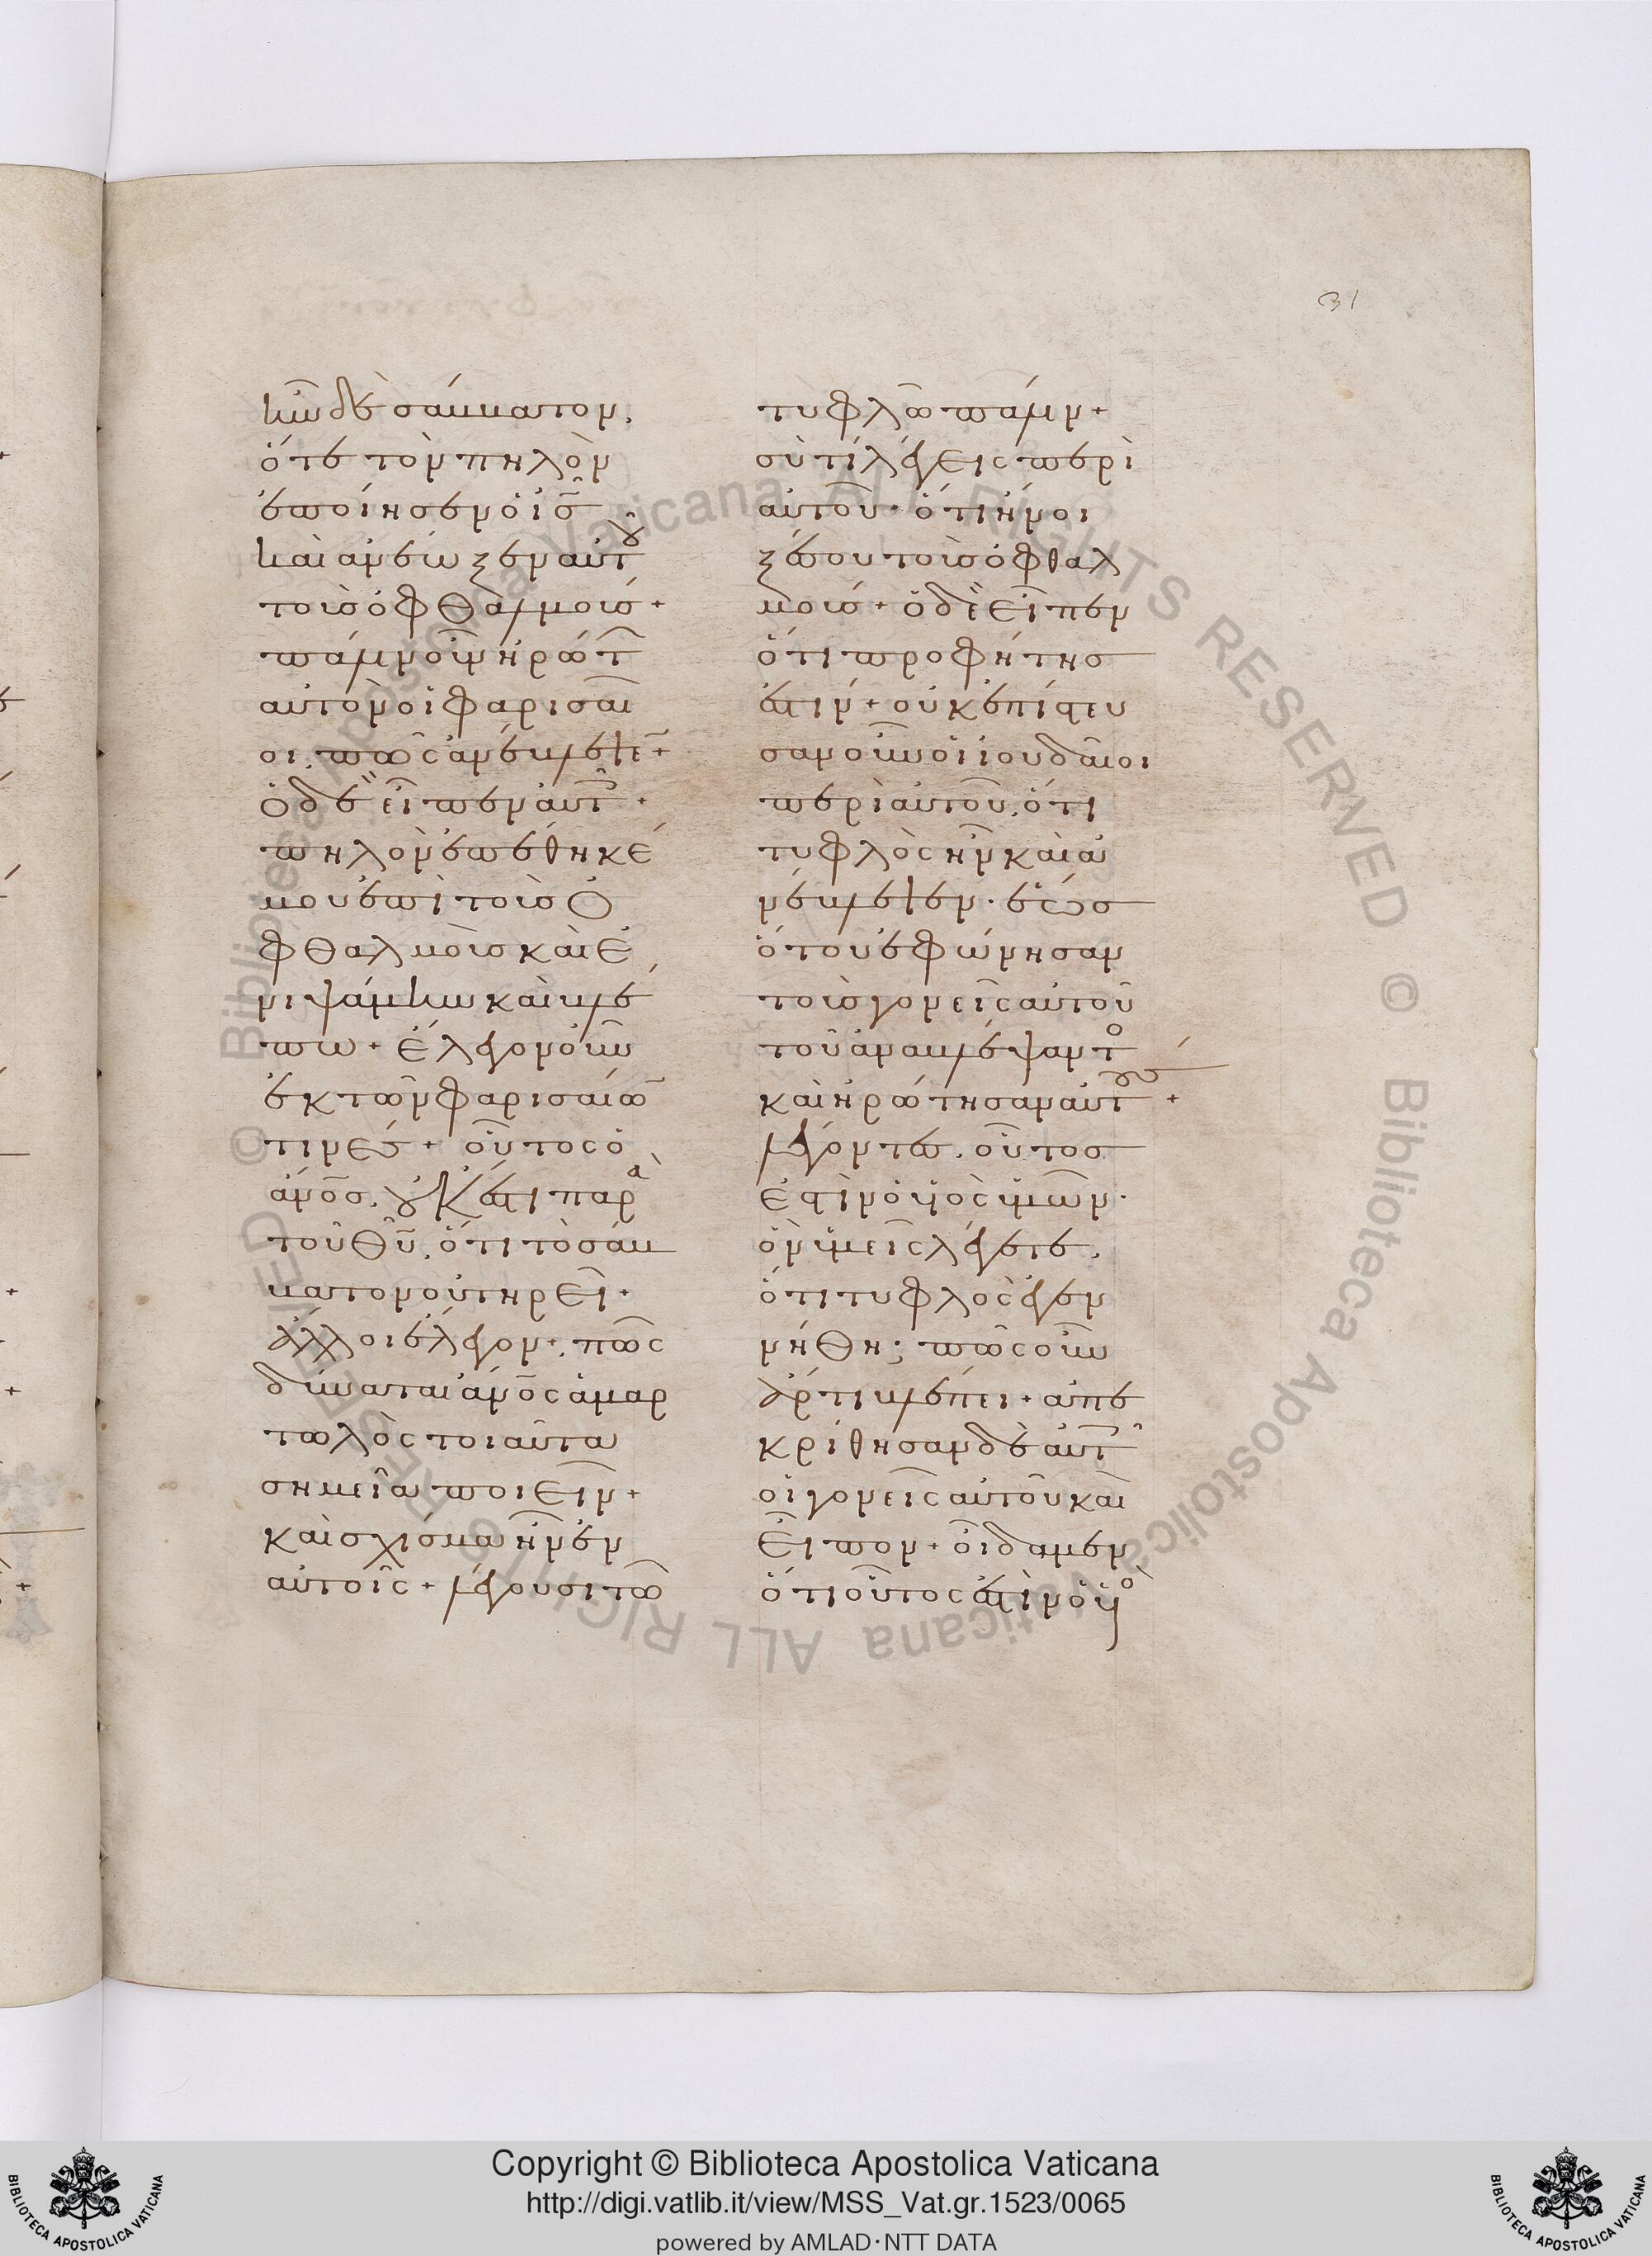 31
ἦν δὲ σάββατον,
ὅτε τὸν πηλὸν
ἐποίησεν ὁ ις̅
καὶ ἀνέωξεν αὐτοῦ
τοὺς ὀφθαλμούς +
πάλιν οὖν ἠρώτων
αὐτὸν οἱ φαρισαῖ
οι, πῶς ἀνέβλεψεν +
ὁ δὲ εἶπεν αὐτοῖς +
πηλὸν ἐπέθηκέ
μου ἐπὶ τοὺς ὀ
φθαλμοὺς καὶ ἐ
νιψάμην καὶ βλέ
πω + ἔλεγον οὖν
ἐκ τῶν φαρισαίων
τινές + οὗτος ὁ
ἄνο̅ς, οὐκ ἔστι παρὰ
τοῦ θυ̅, ὅτι τὸ σάβ
βατον οὐ τηρεῖ +
ἄλλοι ἔλεγον +, πῶς
δύναται ἄνο̅ς ἁμαρ
τωλὸς τοιαῦτα
σημεῖα ποιεῖν +
καὶ σχίσμα ἦν ἐν
αὐτοῖς + λέγουσι τῶ
τυφλῶ πάλιν +
σὺ τί λέγεις περὶ
αὐτοῦ · ὅτι ἤνοι
ξέ σου τοὺς ὀφθαλ
μούς + ὁ δὲ εἶπεν
ὅτι προφήτης
ἐστιν + οὐκ ἐπίστευ
σαν οὖν οἱ ἰουδαῖοι
περὶ αὐτοῦ, ὅτι
τυφλὸς ἦν καὶ ἀ
νέβλεψεν · ἕως
ὅτου ἐφώνησαν
τοὺς γονεῖς αὐτοῦ
τοῦ ἀναβλέψαντος
καὶ ἠρώτησαν αὐτοὺς +
λέγοντες, οὗτος
ἐστὶν ὁ υἱὸς ὑμῶν ·
ὃν ὑμεῖς λέγετε,
ὅτι τυφλὸς ἐγεν
νήθη ; πῶς οὖν
ἄρτι βλέπει + ἀπε
κρίθησαν δὲ αὐτοῖς
οἱ γονεῖς αὐτοῦ καὶ
εἶπον + οἴδαμεν
ὅτι οὗτος ἐστὶν ὁ υἱὸς
Copyright © Biblioteca Apostolica Vaticana
http://digi.vatlib.it/view/MSS_Vat.gr.1523/0065
powered by AMLAD·NTT DATA
BIBLIOTECA APOSTOLICA VATICANA
BIBLIOTECA APOSTOLICA VATICANA
© Biblioteca Apostolica Vaticana ALL RIGHTS RESERVED © Biblioteca Apostolica Vaticana ALL RIGHTS RESERVED